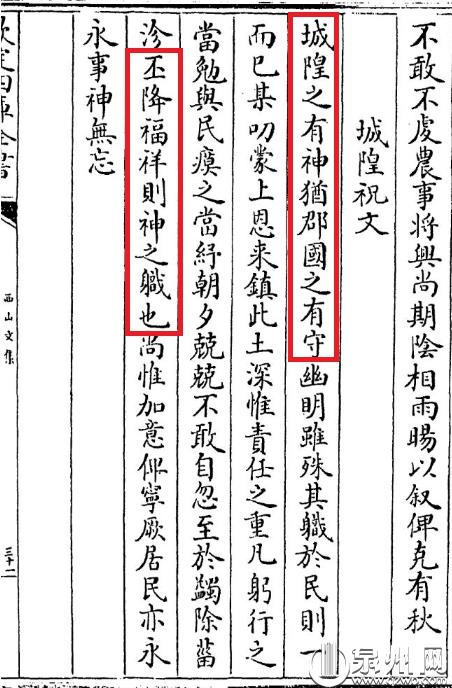 不敢不虔農事将興尚期陰相雨暘以叙俾克有秋
城隍祝文
城隍之有神猶郡國之有守幽明雖殊其軄於民則一
而已某叨蒙上恩来鎮此土深惟責任之重凡躬行之
當勉與民瘼之當紓朝夕兢兢不敢自忽至於蠲除菑
沴丕降福祥則神之軄也尚惟加意俾寧厥居民亦永
永事神無忘
欽定四庫全書
西山文集
三十二
泉州网